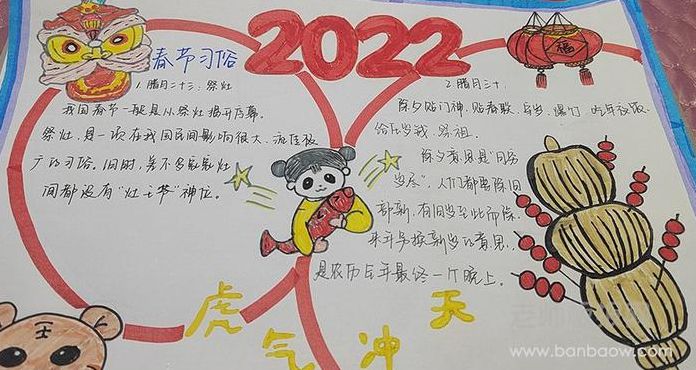 2022
春节习俗
1.腊月二十三：祭灶
我国春节一般是从祭灶揭开序幕。
祭灶，是一项在我国民间影响很大、流传极
广的习俗。旧时，差不多家家灶
间都设有“灶王爷”神位。
2.腊月三十。
除夕贴门神，贴春联，守岁，爆竹，吃年夜饭，
给压岁钱，祭祖。
除夕意思是“月穷
岁尽”，人们都要除旧
部新，有旧岁至此而除，
来年另换新岁的意思。
是农历全年最终一个晚上。
福
虎
气
冲
天
www.banbaow.com